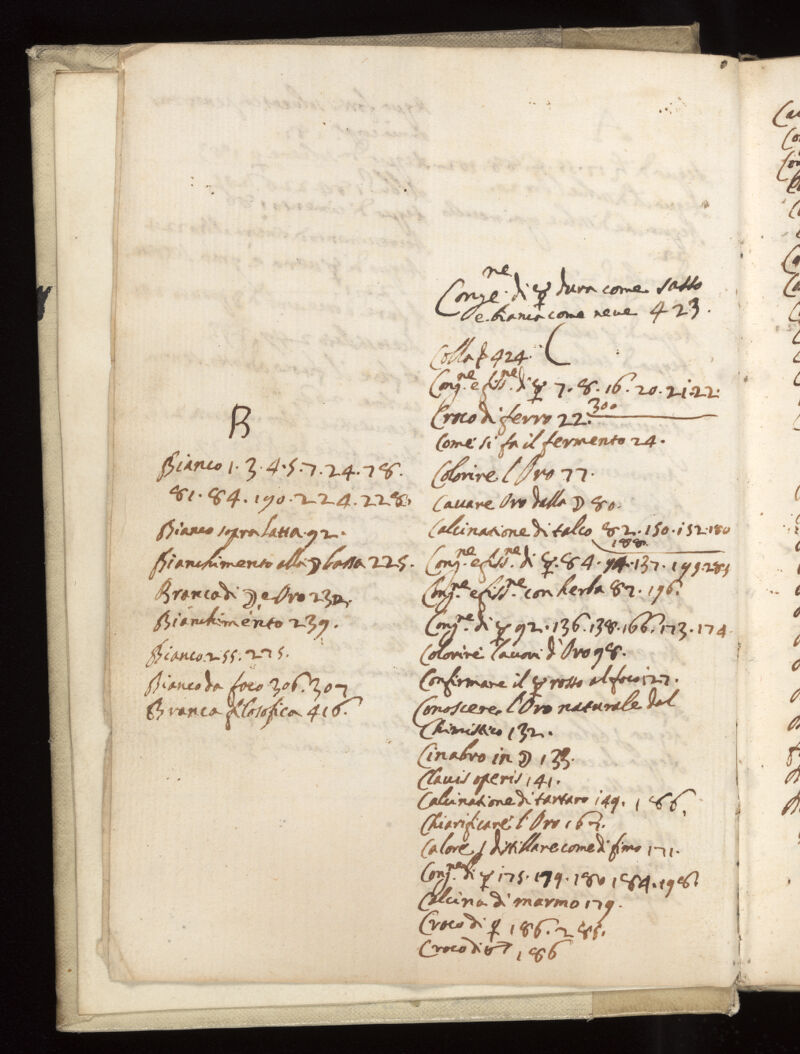 B
Bianco 1·3·4·5·7·24·78·
81·84·190·224·228·
Bianco sopra latta·92·
Bianchimento alla ☽ bassa 225·
Branca di ☽ e Oro 232,
Bianchimento 239·
Bianco 255·275·
Bianco da foco 306·307
Branca filosofica 416·
Conge.ne di ☿ dura come sasso
e biancha come neve 423·
Colla 424·
Cong.ne e fiss.ne di ☿ 7·8·16·20·21·22·
300
Croco di ferro 22·
Come si fa il fermento 24·
Colorire l'Oro 77·
Cavare Oro dalla ☽ 80·
Calcinatione di talco 82·150·152·180
188
Cong.ne e fiss.ne di ☿·84·94·137·199·285
Cong.ne e fiss.ne con herba 87·196·
Cong.ne di ☿ 92·136·138·166·173·174
Colorire lavori d'Oro 98·
Confirmare il ☿ rosso al foco 127·
Conoscere l'Oro naturale dal
Chimistico 132·
Cinabro in ☽ 133·
Clavis operis 141·
Calcinatione di tartaro 149·186·
Chiarificare l'Oro 167·
Calore p distillare come di fimo 171·
Cong.ne di ☿ 175·179·180·184·198·
Calcina di marmo 179·
Croco di ♀ 186·285·
Croco di ♂ 186